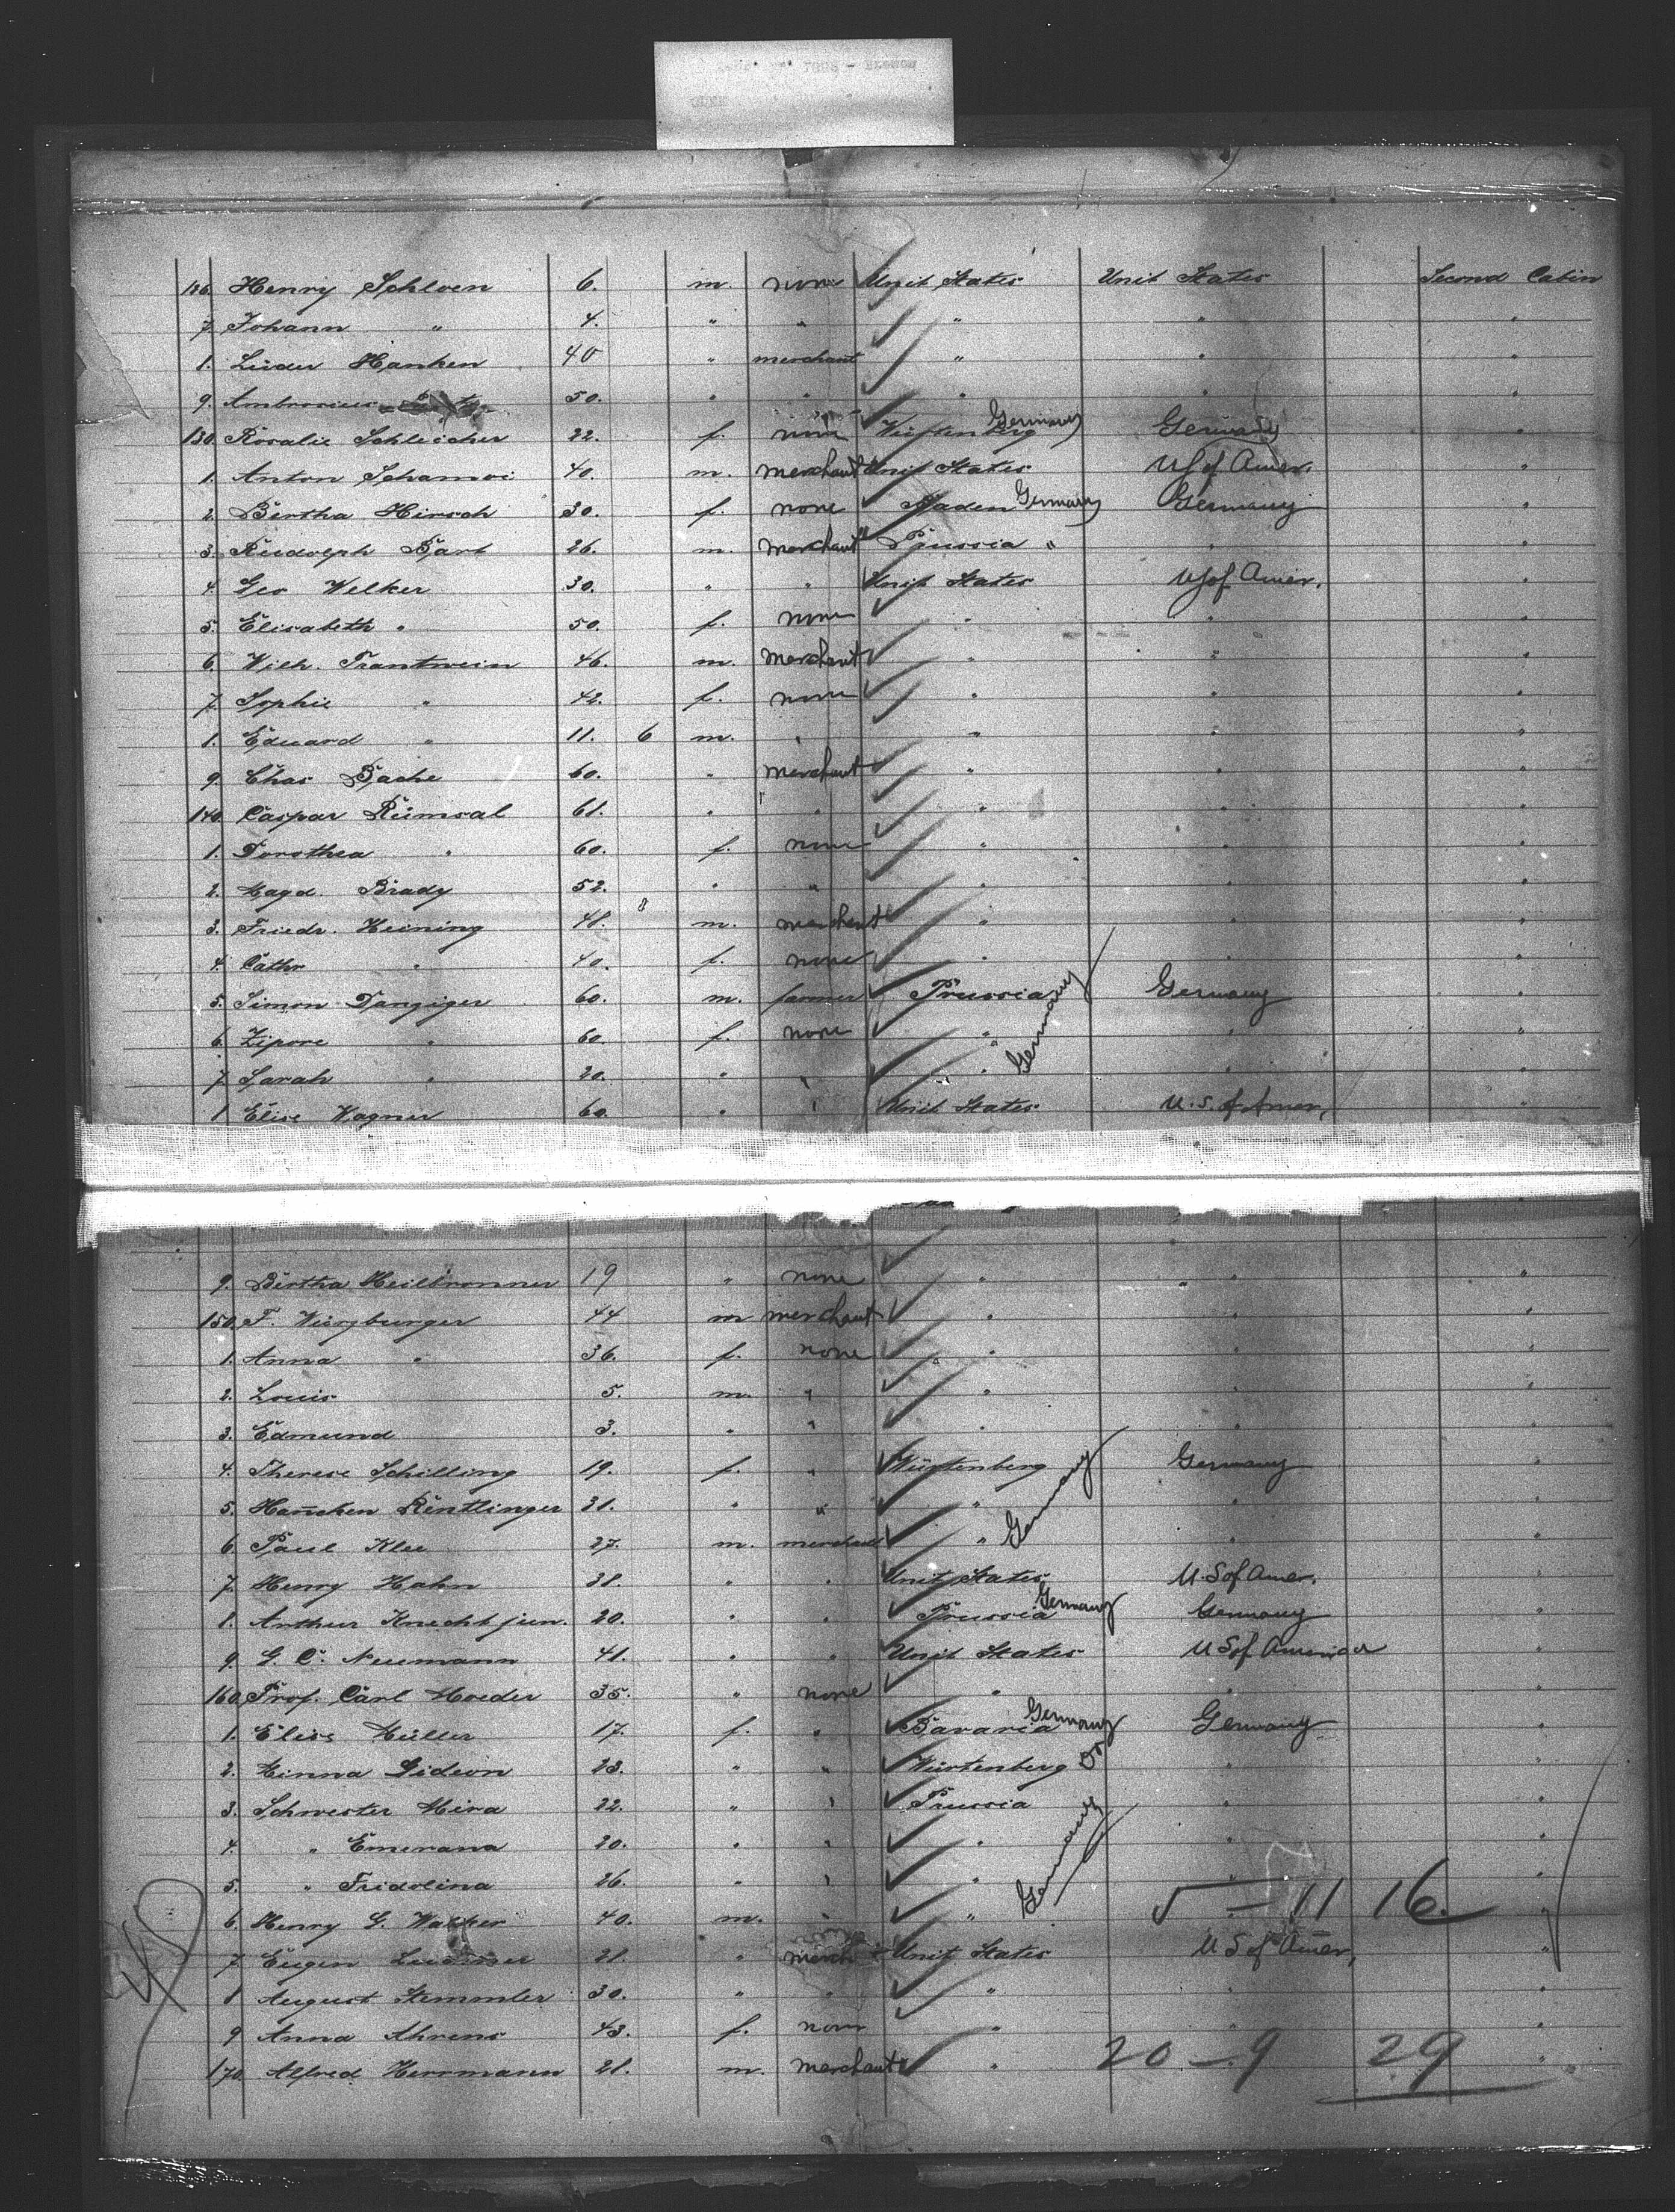 1886 - Bremen
126. Henry Schloen 6. m. none Unit States Unit States Second Cabin
7. Johann " 4. " " " " "
8. Lüder Hanken 40 " merchant " " "
9. Ambrosius 50. " " " " "
130. Rosalie Schleicher 22. f. none Würtenberg Germany Germany "
1. Anton Schamoi 40. m. merchant Unit States US of Amer. "
2. Bertha Hirsch 30. f. none Baden Germany Germany "
3. Rudolph Bart 26. m. merchant Prussia " " "
4. Geo Welker 30. " " Unit States US of Amer. "
5. Elisabeth " 50. f. none " " "
6. Wilh. Trantwein 46. m. merchant " " "
7. Sophie " 42. f. none " " "
8. Eduard " 11. 6 m. " " " "
9. Chas Bache 60. " merchant " " "
140. Caspar Rümsal 61. " " " " "
1. Dorothea " 60. f. none " " "
2. Magd. Brady 52. " " " " "
3. Friedr. Heining 48. 8 m. merchant " " "
4. Cathr " 40. f. none " " "
5. Simon Danziger 60. m. farmer Prussia Germany "
6. Zipore " 60. f. none " Germany " "
7. Sarah " 20. " " " " "
8 Elise Wagner 60. " " Unit States U.S. of Amer. "
9. Bertha Heilbronner 19 " none " " " "
150. F. Würzburger 44 m merchant " " "
1. Anna " 36. f. none " " "
2. Louis 5. m. " " " "
3. Edmund 3. " " " "
4. Therese Schilling 19. f. " Würtenberg Germany "
5. Hanchen Rentlinger 31. " " " Germany " "
6. Paul Klee 27. m. merchant " " "
7. Henry Hahn 38. " " Unit States U.S of Amer. "
8. Arthur Knecht jun. 20. " " Prussia Germany Germany "
9. G. C. Neumann 41. " " Unit States U S of America "
160. Prof. Carl Hoeder 35. " none " " "
1. Elise Müller 17. f. " Bavaria Germany Germany "
2. Minna Gideon 23. " " Würtenberg Do " "
3. Schwester Mira 22. " " Prussia " "
4. " Emerana 20. " " " Germany " "
5. " Fridolina 26. " " " "
6. Henry G. Walker 40. m. " " 5 - 11 16. "
7. Eugen 21. " merch Unit States U S of Amer, "
8 August Stemmler 30. " " " " "
9 Anna Ahrens 43. f. none " "
170. Alfred Herrmann 21. m. merchant " 20 - 9 29 "